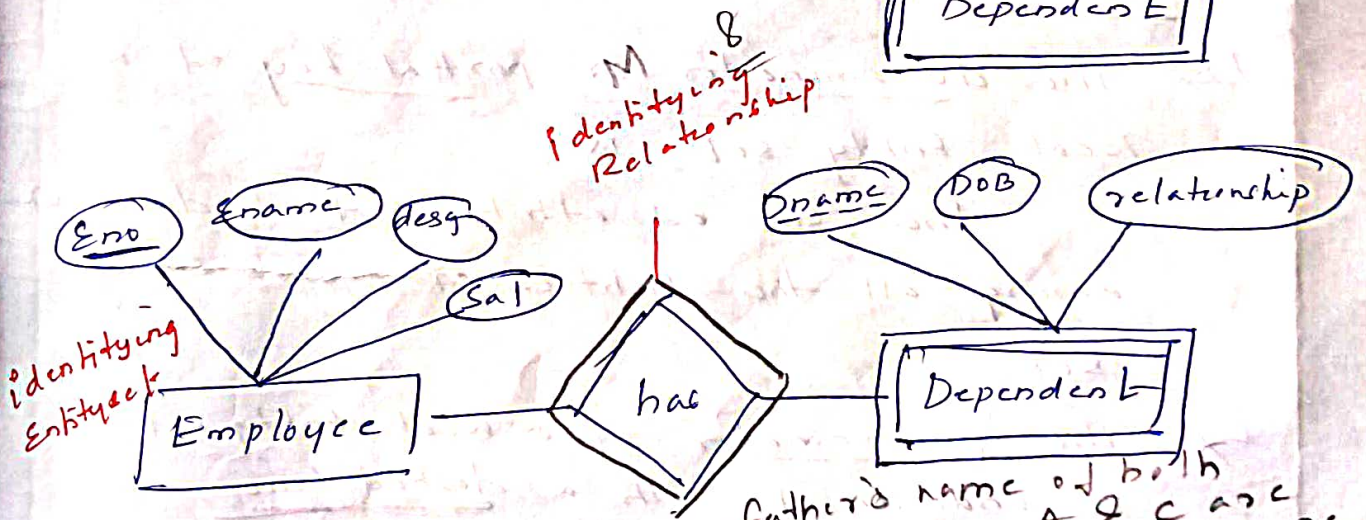 Dependent
8
M
identitying
Relationship
Eno
Ename
desg
Sal
Dname
DOB
relationship
identitying
Entityset
Employee
has
Dependent
father's name of both
A & C are